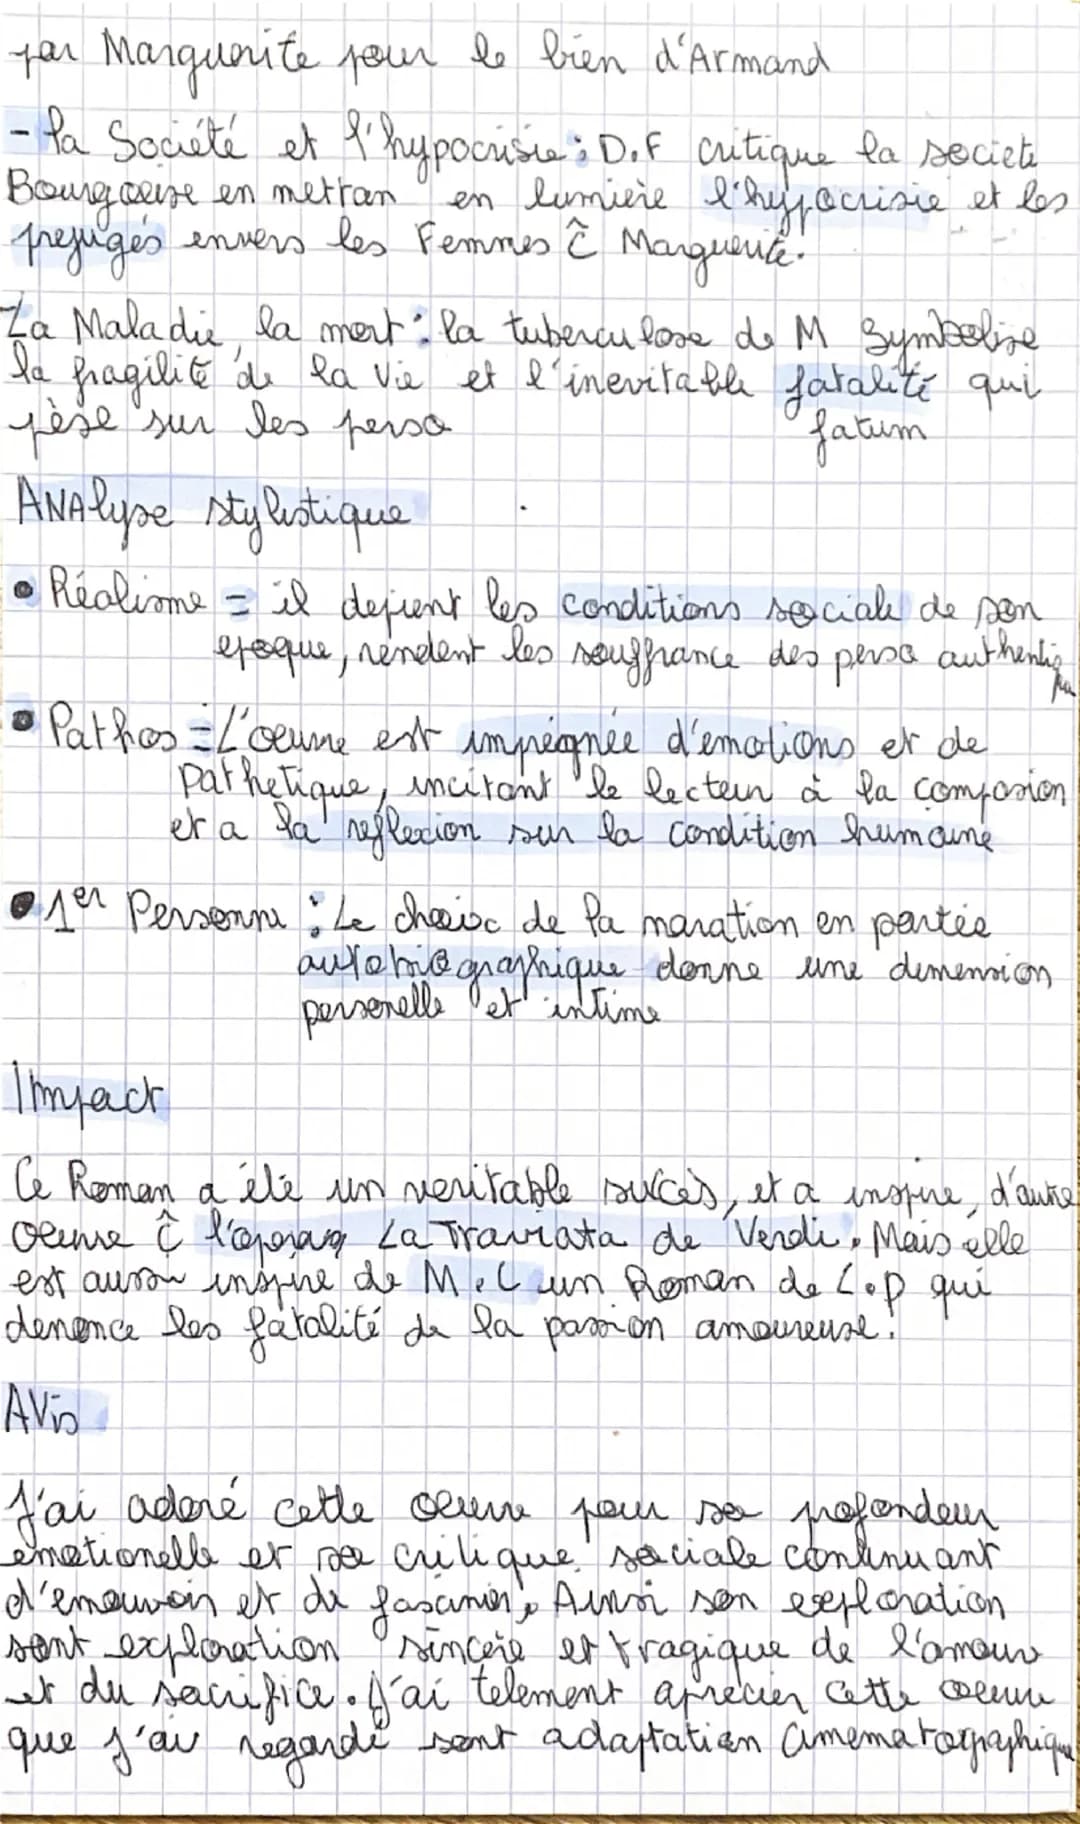 par Marguerite pour le bien d'Armand
- la Société et l'hypocrisie ; D.F critique la societe
Bourgeoise en mettan en lumière l'hypocrisie et les
prejugés envers les Femmes Ĉ Marguerite.
La Maladie, la mort : la tuberculose de M Symbolise
la fragilité de la vie et l'inevitable fatalité qui
pèse sur les perso fatum
ANAlyse stylistique
• Réalisme = il depient les conditions sociale de son
epoque, rendent les souffrance des perso authentiq
ue
• Pathos = L'oeuvre est impregnée d'emotions et de
Pathetique, incitant le lecteur à la compasion
et a la reflexion sur la condition humaine
• 1er Personne ; Le choix de la naration en partie
autobiographique donne une dimension
personelle et intime
Impact
Ce Roman a été un veritable succès, et a inspire, d'autre
oeuvre Ĉ l'opera La Traviata de Verdi. Mais elle
est aussi inspire de M.L un Roman de L.P qui
denonce les fatalité de la passion amoureuse.
AVis
J'ai adoré cette oeuvre pour sa profondeur
emotionelle et sa critique sociale continuant
d'emouvoir et de fasciner, Ainsi son exploration
sont exploration sincere et tragique de l'amour
et du sacrifice. J'ai telement aprecier cette oeuvre
que j'ai regardé sont adaptation cinematographique